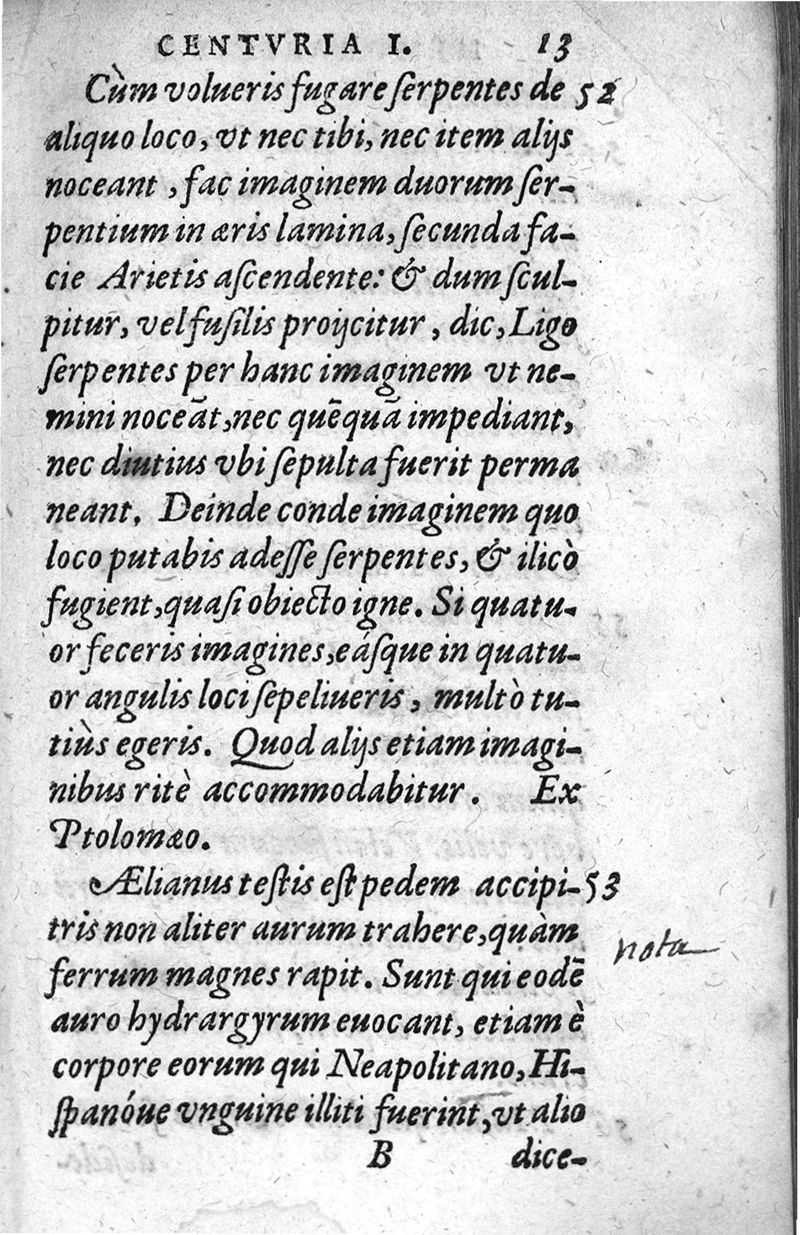 CENTVRIA I. 13
Cùm volueris fugare ſerpentes de 52
aliquo loco, vt nec tibi, nec item alijs
noceant, fac imaginem duorum ſer-
pentium in æris lamina, ſecunda fa-
cie Arietis aſcendente: & dum ſcul-
pitur, vel fuſilis proijcitur, dic, Ligo
ſerpentes per hanc imaginem vt ne-
mini noceāt, nec quēquā impediant,
nec diutius vbi ſepulta fuerit perma
neant. Deinde conde imaginem quo
loco putabis adeſſe ſerpentes, & ilicò
fugient, quaſi obiecto igne. Si quatu-
or feceris imagines, eáſque in quatu-
or angulis loci ſepeliueris, multò tu-
tiùs egeris. Quod alijs etiam imagi-
nibus ritè accommodabitur. Ex
Ptolomæo.
Ælianus teſtis eſt pedem accipi- 53
tris non aliter aurum trahere, quàm
ferrum magnes rapit. Sunt qui eodē
nota
auro hydrargyrum euocant, etiam è
corpore eorum qui Neapolitano, Hi-
ſpanóue vnguine illiti fuerint, vt alio
B dice-